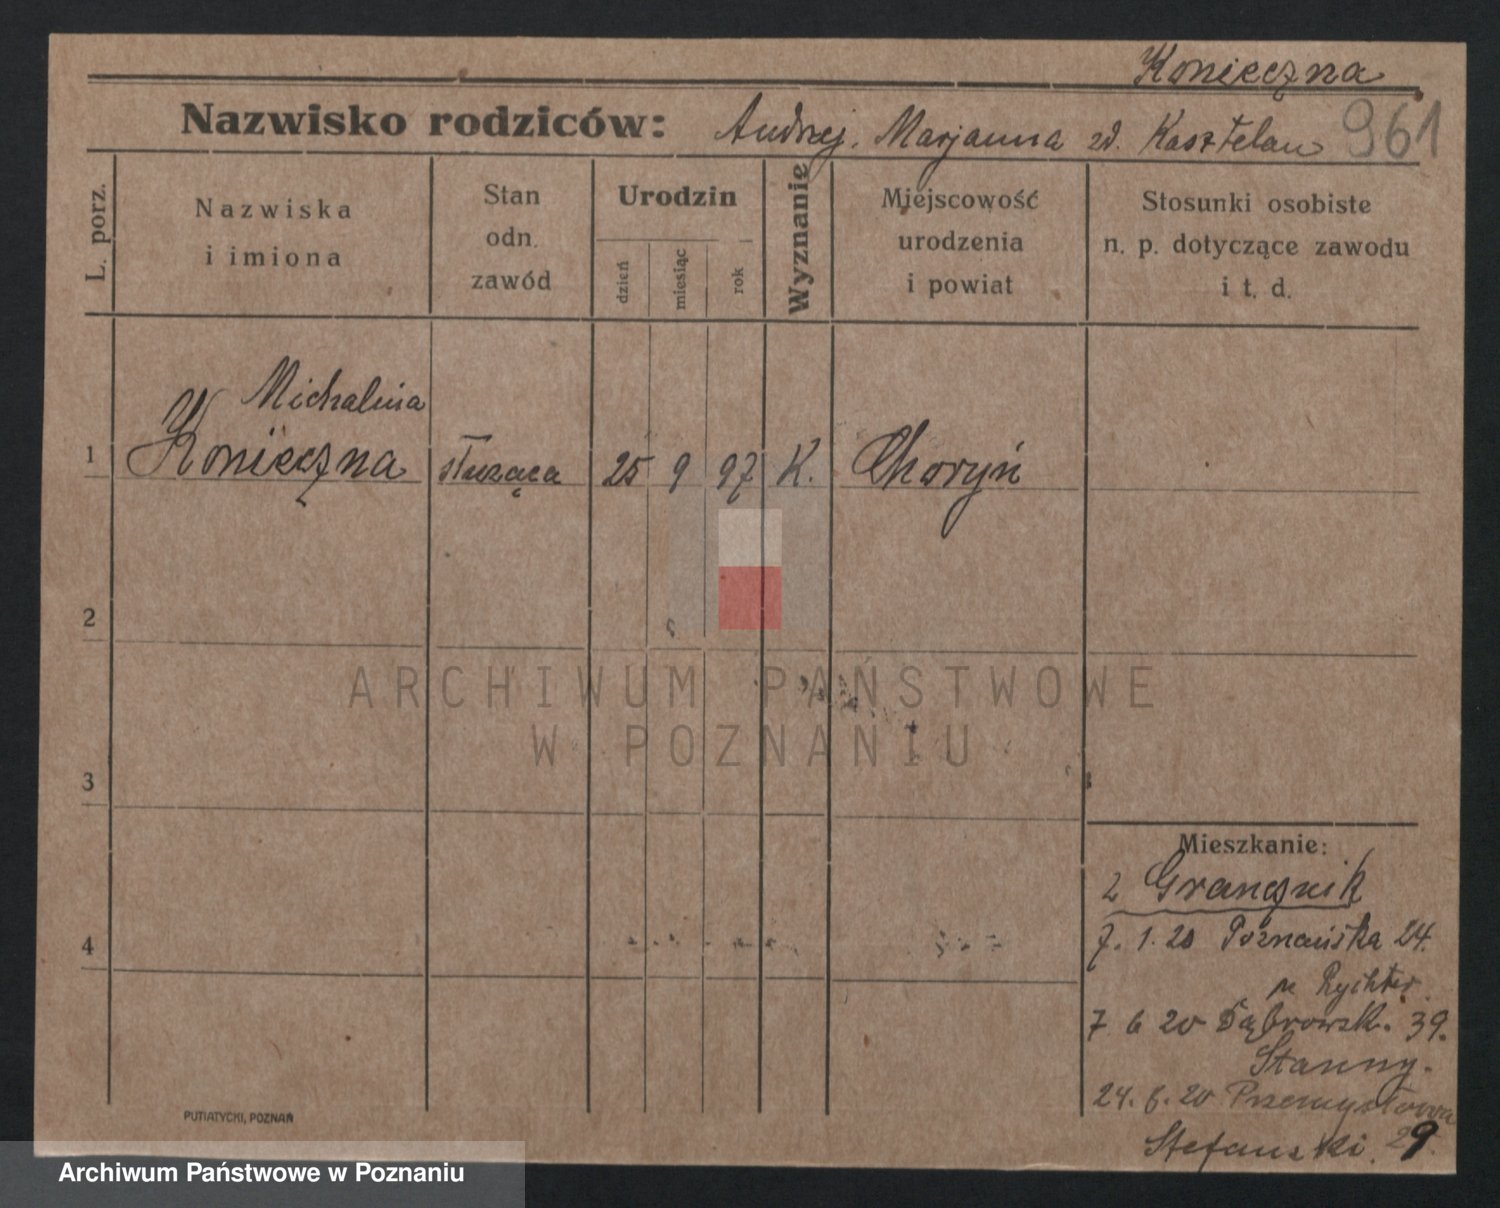 Konieczna
Nazwisko rodziców: Andrzej. Marjanna zd. Kasztelan 961
L. porz.
Nazwiska
i imiona
Stan
odn.
zawód
Urodzin
dzień
miesiąc
rok
Wyznanie
Miejscowość
urodzenia
i powiat
Stosunki osobiste
n. p. dotyczące zawodu
i t. d.
Michalina
1 Konieczna służąca 25 9 97 K. Choryń
2
ARCHIWUM PAŃSTWOWE
W POZNANIU
3
4
Mieszkanie:
z Granecznik
7. 1. 20 Poznańska 24.
Rychter.
7 6 20 Dąbrowsk. 39.
Stanny.
24. 6. 20 Przemysłowa
Stefański. 29.
PUTIATYCKI, POZNAŃ
Archiwum Państwowe w Poznaniu